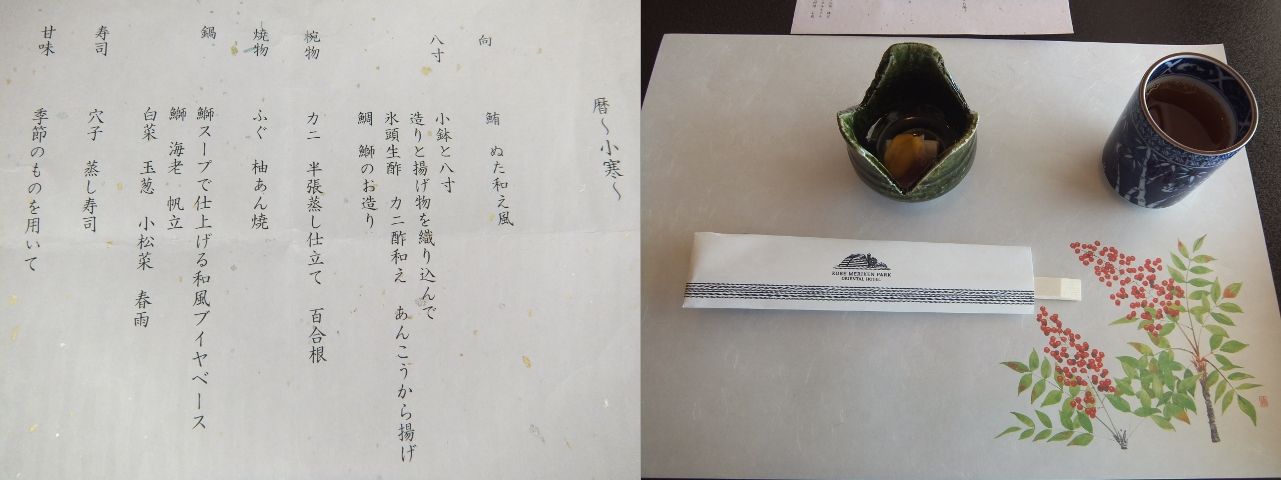 暦～小寒～
向
鮪 ぬた和え風
八寸
小鉢と八寸
造りと揚げ物を織り込んで
氷頭生酢 カニ酢和え あんこうから揚げ
鯛 鰤のお造り
椀物
カニ 半張蒸し仕立て 百合根
焼物
ふぐ 柚あん焼
鍋
鰤スープで仕上げる和風ブイヤベース
鰤 海老 帆立
白菜 玉葱 小松菜 春雨
寿司
穴子 蒸し寿司
甘味
季節のものを用いて
KOBE MERIKEN PARK
ORIENTAL HOTEL